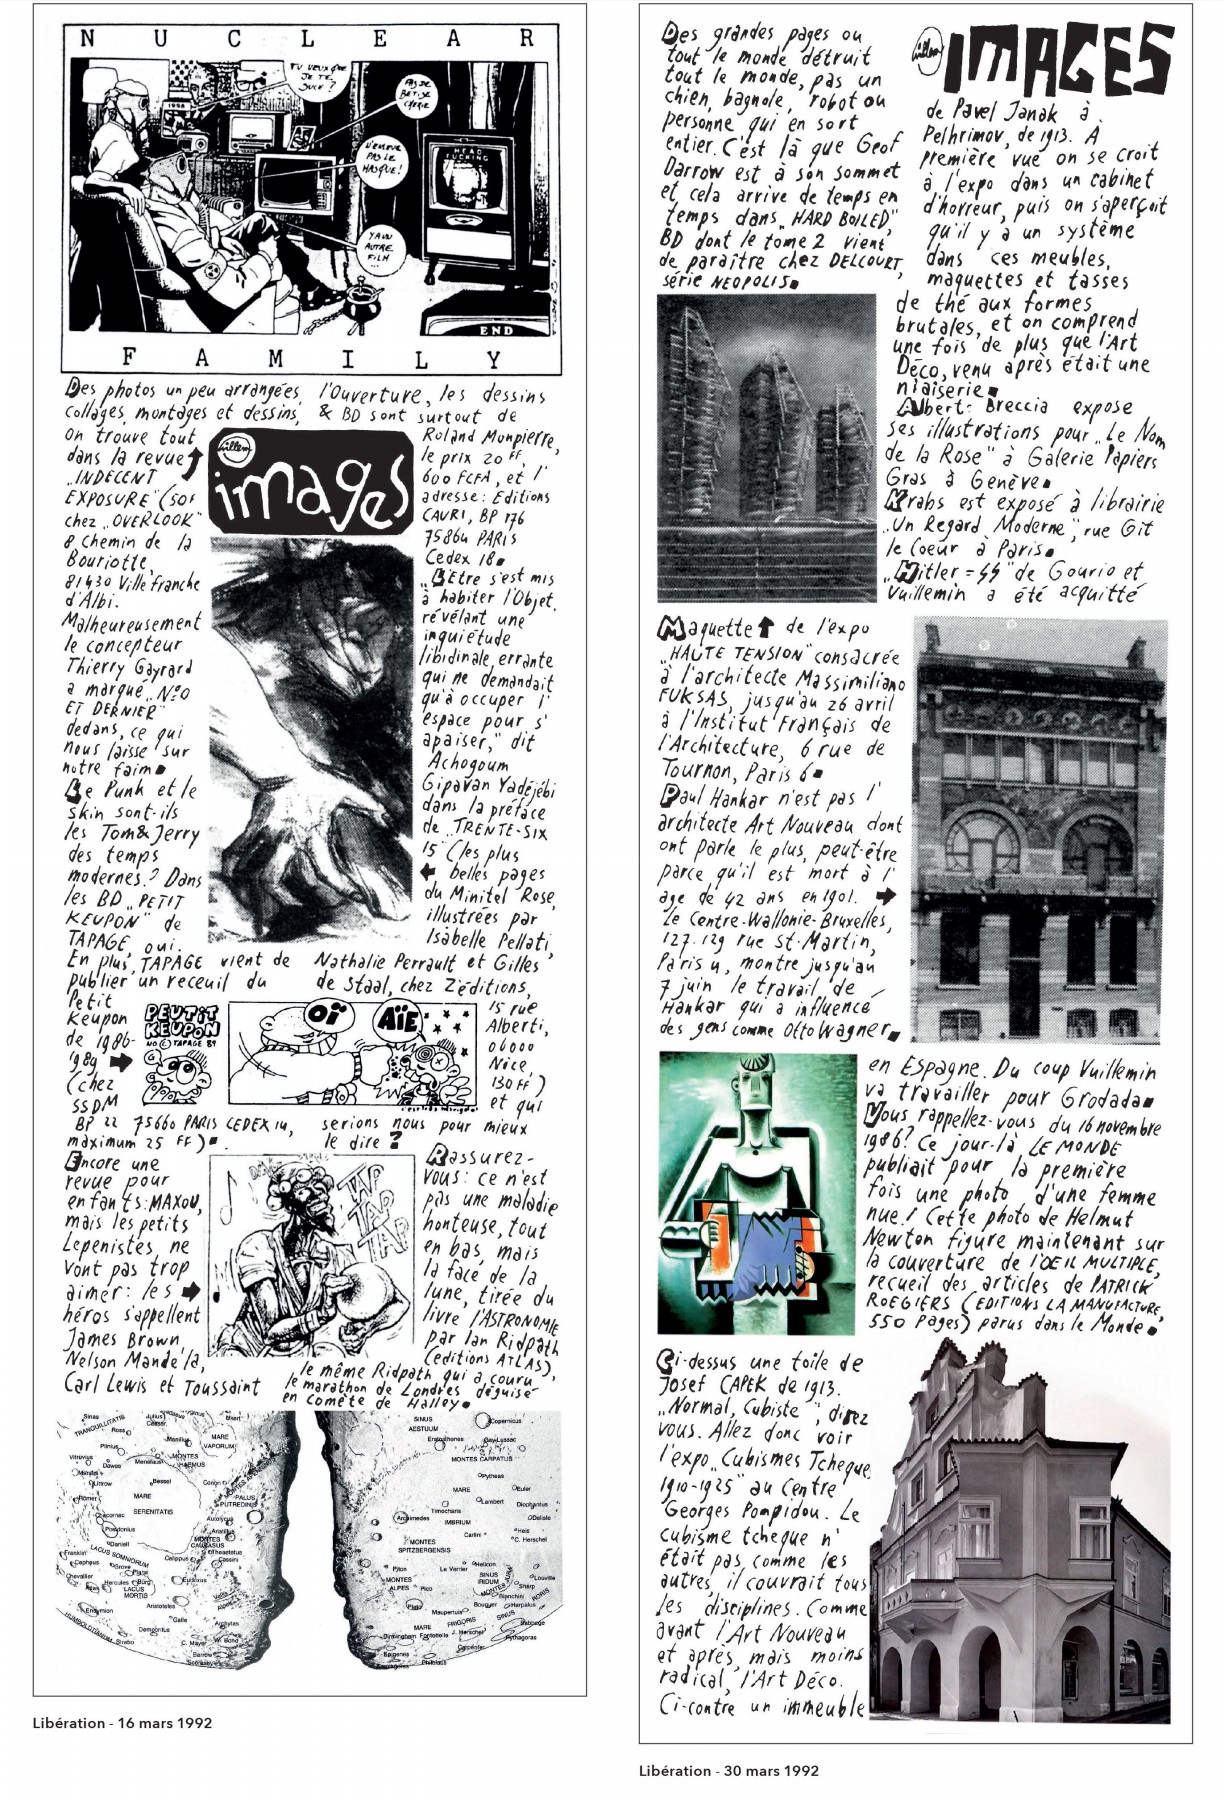 NUCLEAR
TU VEUX QUE
JE TE
SUCE ?
PAS DE
BETISE
CHERIE
N'ENLEVE
PAS LE
MASQUE!
Y A UN
AUTRE
FILM
...
1998
HEAD
FUCKING
END
FAMILY
Des photos un peu arrangées,
collages, montages et dessins,
on trouve tout
dans la revue
„INDECENT
EXPOSURE" (50F
chez „OVERLOOK"
8 chemin de la
Bouriotte,
81430 Villefranche
d'Albi.
Malheureusement
le concepteur
Thierry Gayrard
a marqué „N°0
ET DERNIER"
dedans, ce qui
nous laisse sur
notre faim
Le Punk et le
Skin sont-ils
les Tom & Jerry
des temps
modernes? Dans
les BD „PETIT
KEUPON" de
TAPAGE, oui.
En plus, TAPAGE vient de
publier un receuil du
Petit
Keupon
de 1986-
1989
(chez
SSDM
BP 22 75660 PARIS CEDEX 14,
maximum 25 FF).
PEUTIT
KEUPON
NO © TAPAGE 89
OÏ
AÏE
Encore une
revue pour
enfants: MAXOU,
mais les petits
Lepenistes, ne
vont pas trop
aimer: les
héros s'appellent
James Brown,
Nelson Mandéla,
Carl Lewis et Toussaint
TAP
TAP
TAP
willem
images
l'Ouverture, les dessins
& BD sont surtout de
Roland Monpierre,
le prix 20 FF,
600 FCFA, et l'
adresse: Editions
CAURI, BP 176
75864 PARIS
Cedex 18
„L'Etre s'est mis
à habiter l'Objet,
révélant une
inquiétude
libidinale, errante
qui ne demandait
qu'à occuper l'
espace pour s'
apaiser," dit
Achogoum
Gipavan Yadéjébi
dans la préface
de „TRENTE-SIX
15 (les plus
belles pages
du Minitel Rose,
illustrées par
Isabelle Pellati,
Nathalie Perrault et Gilles
de Staal, chez Z'éditions,
15 rue
Alberti,
06000
Nice,
130 FF)
et qui
serions nous pour mieux
le dire ?
Rassurez-
vous: ce n'est
pas une maladie
honteuse, tout
en bas, mais
la face de la
lune, tirée du
livre l'ASTRONOMIE
par Ian Ridpath
(editions ATLAS),
le même Ridpath qui a couru
le marathon de Londres déguisé
en comète de Halley
Sinas
TRANQUILLITATIS
Julius
Caesar
Ross
Ukert
Manilius
MARE
VAPORUM
Plinius
Vitruvius
Dawes
Menelaus
MONTES
HAEMUS
Littrow
Bessel
Conon
Römer
MARE
SERENITATIS
PALUS
PUTREDINIS
Chacornac
Posidonius
Autolycus
Aristillus
Daniell
MONTES
CAUCASUS
Theaetetus
Cassini
Calippus
Franklin
LACUS SOMNIORUM
Cepheus
Grove
Plana
Chevallier
Hercules
Bürg
LACUS
MORTIS
Eudoxus
Aristoteles
Endymion
Galle
HUMBOLDTIANUM
Strabo
Democritus
Archytas
C. Mayer
W. Bond
Barrow
Scoresby
SINUS
AESTUUM
Copernicus
Eratosthenes
Gay-Lussac
MONTES CARPATUS
Pytheas
MARE
Euler
Lambert
Diophantus
Timocharis
Archimedes
IMBRIUM
Delisle
Carlini
Heis
C. Herschel
MONTES
SPITZBERGENSIS
Piton
Le Verrier
Helicon
MONTES
ALPES
Pico
SINUS
IRIDUM
Louville
Sharp
Bianchini
Plato
Maupertuis
Bouguer
Harpalus
MARE
FRIGORIS
SINUS
RORIS
Babbage
J. Herschel
Birmingham
Fontenelle
Pythagoras
Epigenes
Carpenter
Anaxagoras
Philolaus
Libération - 16 mars 1992
Des grandes pages ou
tout le monde détruit
tout le monde, pas un
chien, bagnole, robot ou
personne qui en sort
entier. C'est là que Geof
Darrow est à son sommet
et cela arrive de temps en
temps dans „HARD BOILED",
BD dont le tome 2 vient
de paraître chez DELCOURT,
série NEOPOLIS
Maquette de l'expo
„HAUTE TENSION" consacrée
à l'architecte Massimiliano
FUKSAS, jusqu'au 26 avril
à l'Institut Français de
l'Architecture, 6 rue de
Tournon, Paris 6
Paul Hankar n'est pas l'
architecte Art Nouveau dont
ont parle le plus, peut-être
parce qu'il est mort à l'
age de 42 ans en 1901.
Le Centre-Wallonie-Bruxelles,
127-129 rue St-Martin,
Paris 4, montre jusqu'au
7 juin le travail de
Hankar qui a influencé
des gens comme Otto Wagner
Ci-dessus une toile de
Josef CAPEK de 1913.
„Normal, Cubiste", direz
vous. Allez donc voir
l'expo „Cubismes Tcheque,
1910-1925" au Centre
Georges Pompidou. Le
cubisme tcheque n'
était pas comme les
autres, il couvrait tous
les disciplines. Comme
avant l'Art Nouveau
et après, mais moins
radical, l'Art Déco.
Ci-contre un immeuble
willem
IMAGES
de Pavel Janak à
Pelhrimov, de 1913. A
première vue on se croit
à l'expo dans un cabinet
d'horreur, puis on s'aperçoit
qu'il y a un système
dans ces meubles,
maquettes et tasses
de thé aux formes
brutales, et on comprend
une fois de plus que l'Art
Déco, venu après était une
niaiserie
Albert: Breccia expose
ses illustrations pour „Le Nom
de la Rose" à Galerie Papiers
Gras à Genève
Krabs est exposé à librairie
„Un Regard Moderne", rue Git
le Coeur à Paris
„Hitler = SS" de Gourio et
Vuillemin a été acquitté
en Espagne. Du coup Vuillemin
va travailler pour Grodada
Vous rappellez-vous du 16 novembre
1986? Ce jour-là, LE MONDE
publiait pour la première
fois une photo d'une femme
nue! Cette photo de Helmut
Newton figure maintenant sur
la couverture de l'OEIL MULTIPLE,
recueil des articles de PATRICK
ROEGIERS (EDITIONS LA MANUFACTURE,
550 pages) parus dans le Monde
Libération - 30 mars 1992